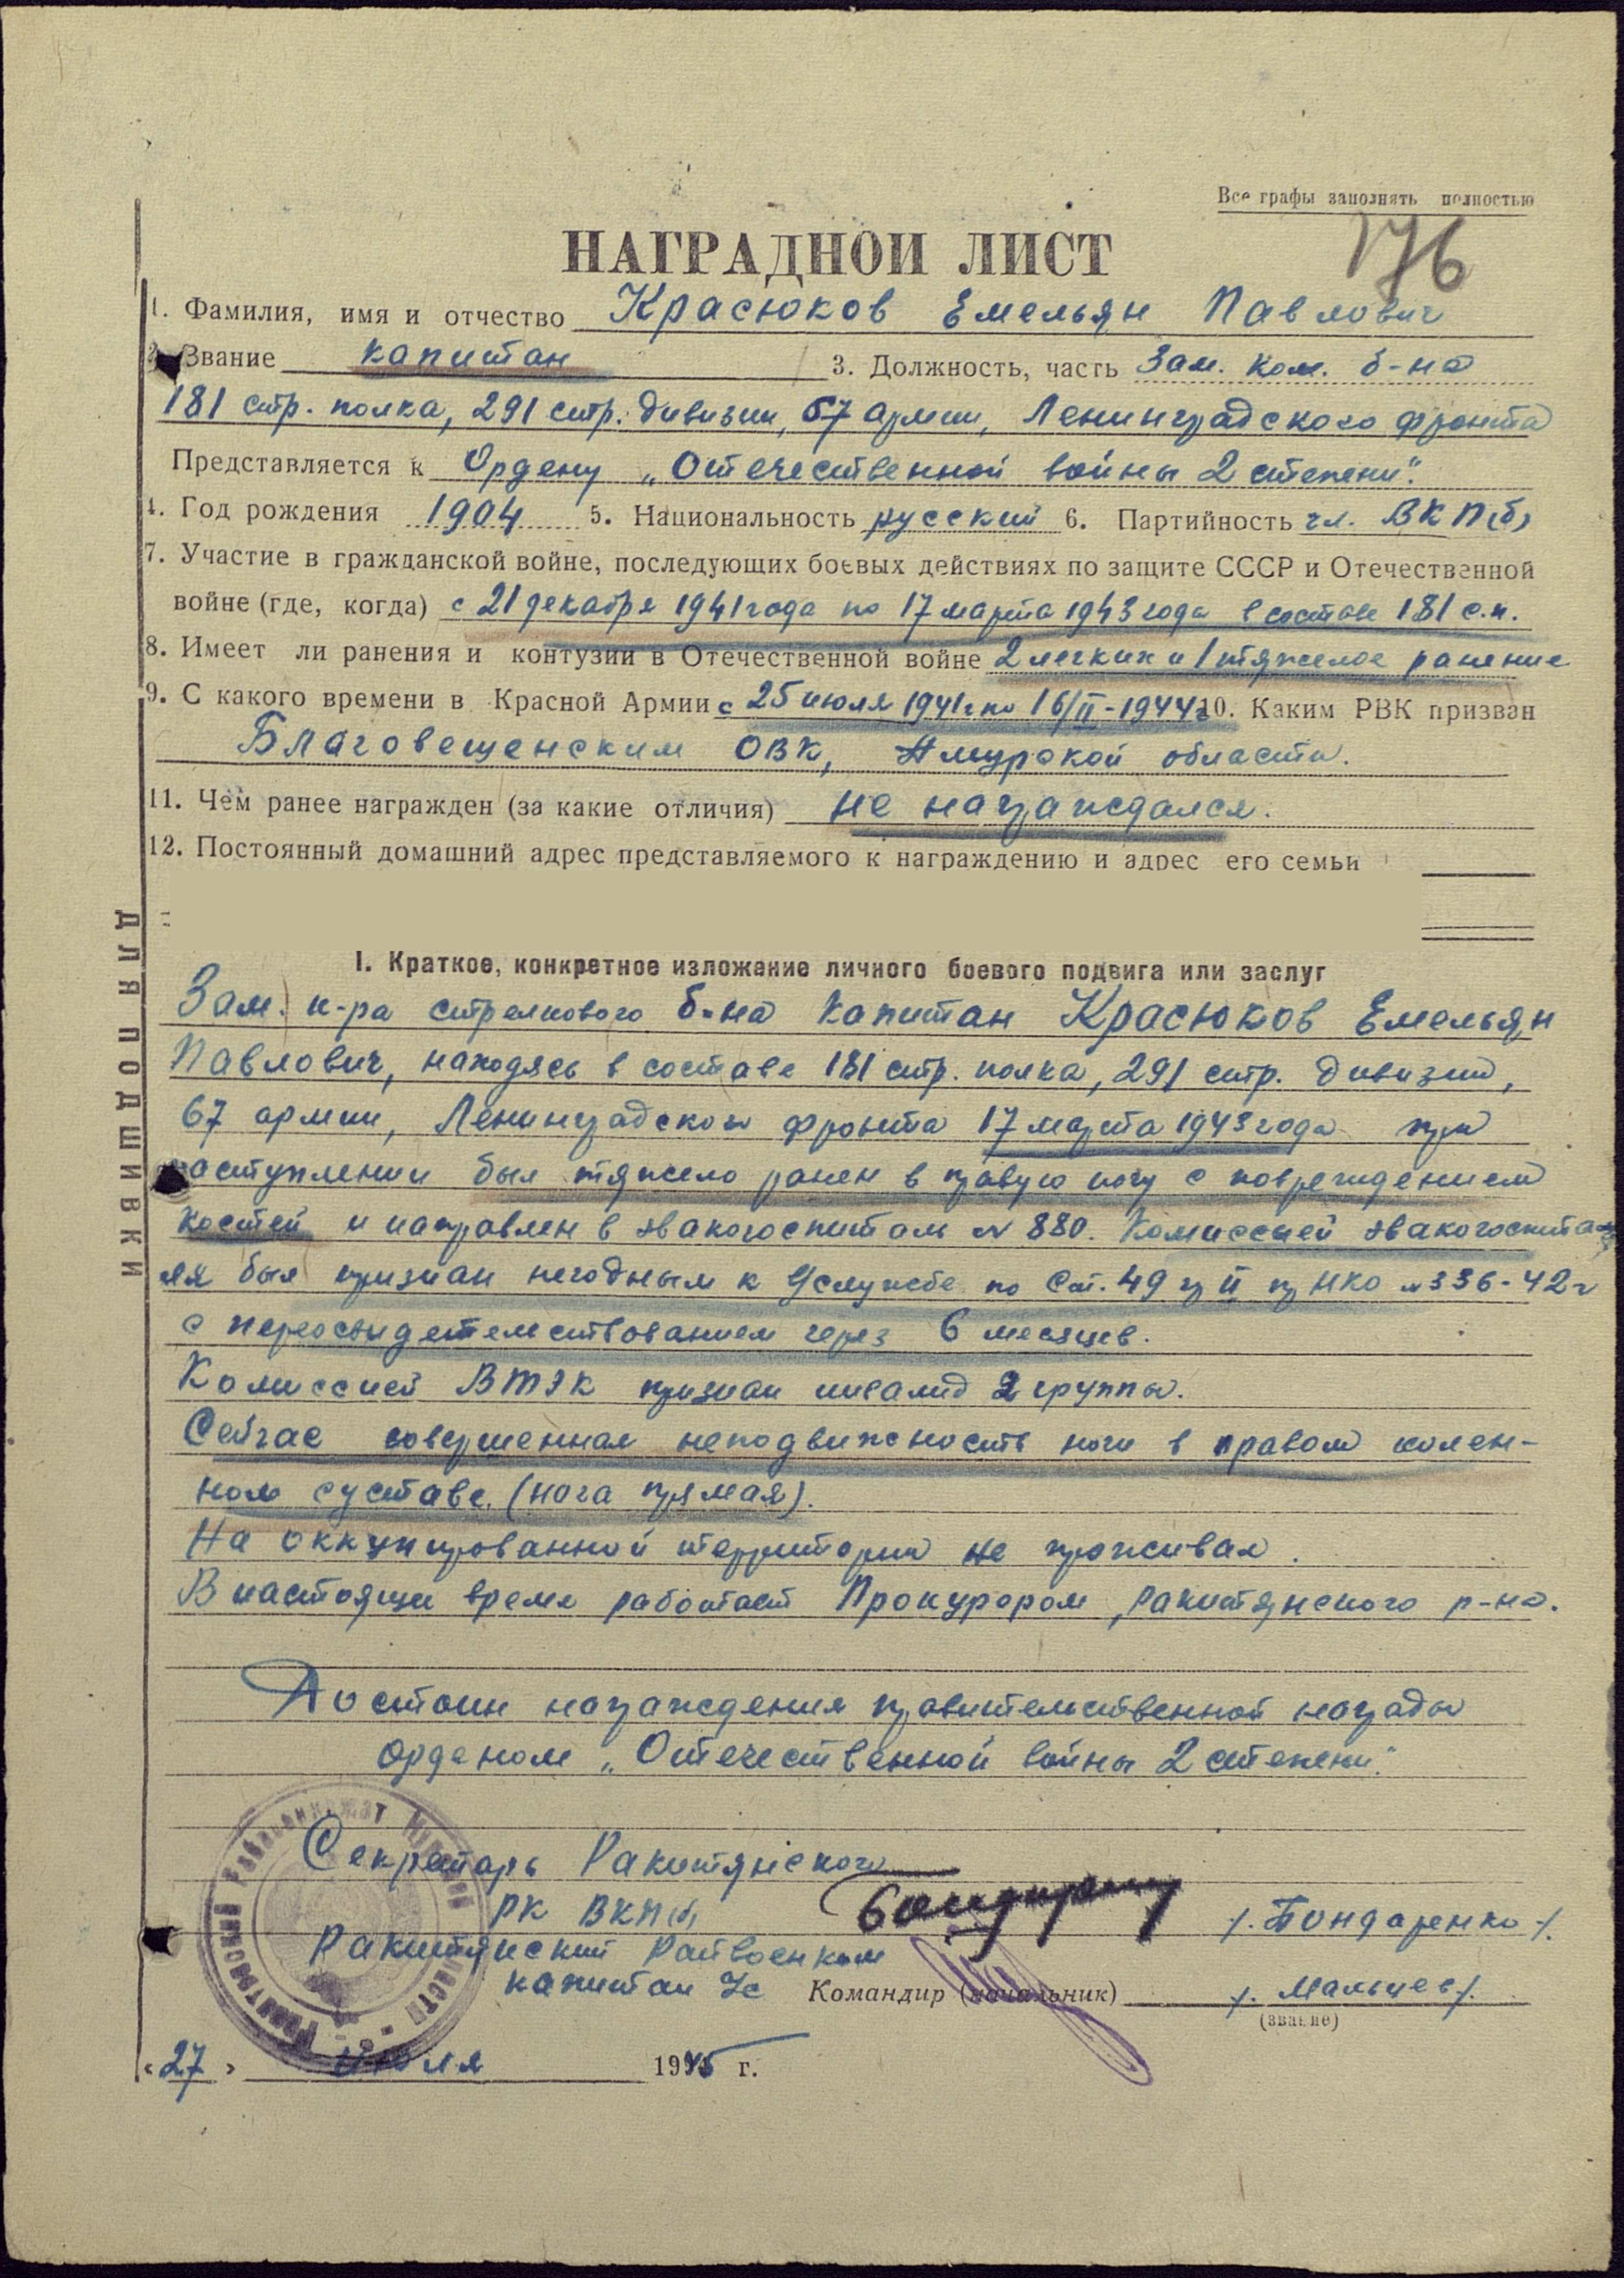 Все графы заполнять полностью
176
НАГРАДНОЙ ЛИСТ
1. Фамилия, имя и отчество Красюков Емельян Павлович
2. Звание капитан 3. Должность, часть Зам. ком. б-на
181 стр. полка, 291 стр. дивизии, 67 армии, Ленинградского фронта
Представляется к Ордену „Отечественной войны 2 степени".
4. Год рождения 1904 5. Национальность русский 6. Партийность чл. ВКП(б)
7. Участие в гражданской войне, последующих боевых действиях по защите СССР и Отечественной
войне (где, когда) с 21 декабря 1941 года по 17 марта 1943 года в составе 181 с.п.
8. Имеет ли ранения и контузии в Отечественной войне 2 легких и 1 тяжелое ранение
9. С какого времени в Красной Армии с 25 июля 1941г по 16/II-1944г 10. Каким РВК призван
Благовещенским ОВК, Амурской области.
11. Чем ранее награжден (за какие отличия) не награждался.
12. Постоянный домашний адрес представляемого к награждению и адрес его семьи
ДЛЯ ПОДШИВКИ
I. Краткое, конкретное изложение личного боевого подвига или заслуг
Зам. к-ра стрелкового б-на капитан Красюков Емельян
Павлович, находясь в составе 181 стр. полка, 291 стр. дивизии,
67 армии, Ленинградского фронта 17 марта 1943 года при
наступлении был тяжело ранен в правую ногу с повреждением
костей и направлен в эвакогоспиталь № 880. Комиссией эвакогоспита-
ля был признан негодным к службе по Ст. 49 гр II пр НКО №336-42г
с переосвидетельствованием через 6 месяцев.
Комиссией ВТЭК признан инвалид 2 группы.
Сейчас совершенная неподвижность ноги в правом колен-
ном суставе. (нога прямая).
На оккупированной территории не проживал.
В настоящее время работает Прокурором Ракитянского р-на.
Достоин награждения правительственной награды
орденом „Отечественной войны 2 степени".
Секретарь Ракитянского
РК ВКП(б) Бондаренко /. Бондаренко /.
Ракитянский Райвоенком
капитан Командир (начальник) /. Мальцев /.
(звание)
«27» июля 1945 г.